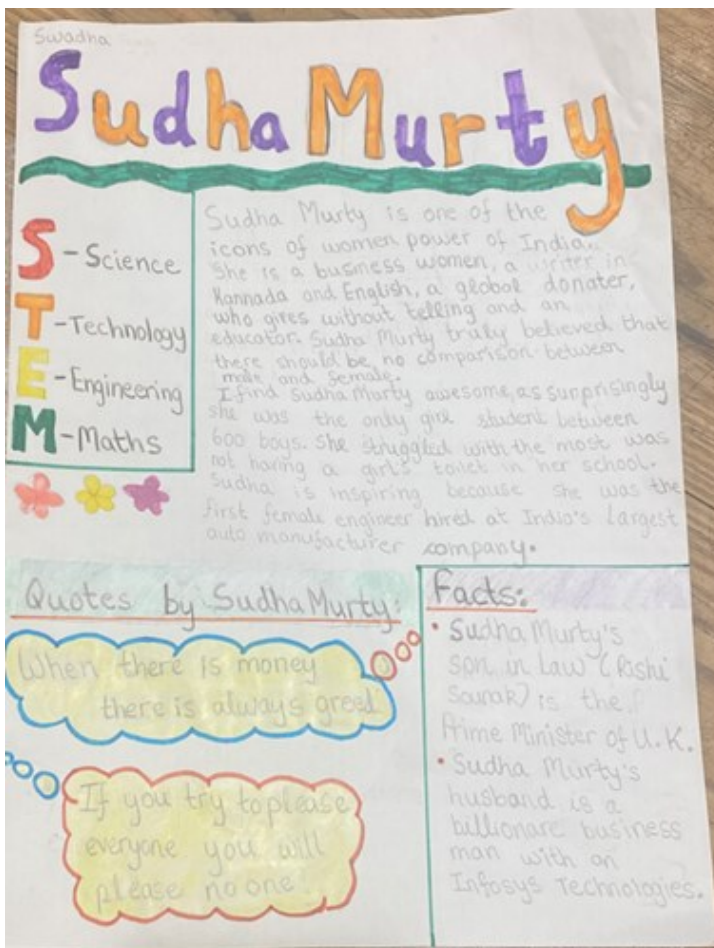 Swadha
Sudha Murty
S - Science
T - Technology
E - Engineering
M - Maths
Sudha Murty is one of the
icons of women power of India.
She is a business women, a writer in
Kannada and English, a global donater,
who gives without telling and an
educator. Sudha Murty truly believed that
there should be no comparison between
male and female.
I find Sudha Murty awesome, as surprisingly
she was the only girl student between
600 boys. She struggled with the most was
not having a girls toilet in her school.
Sudha is inspiring because she was the
first female engineer hired at India's largest
auto manufacturer company.
Quotes by Sudha Murty:
When there is money
there is always greed
If you try to please
everyone you will
please no one!
Facts:
• Sudha Murty's
son in law (Rishi
Sounak) is the
Prime Minister of U.K.
• Sudha Murty's
husband is a
billionare business
man with an
Infosys Technologies.